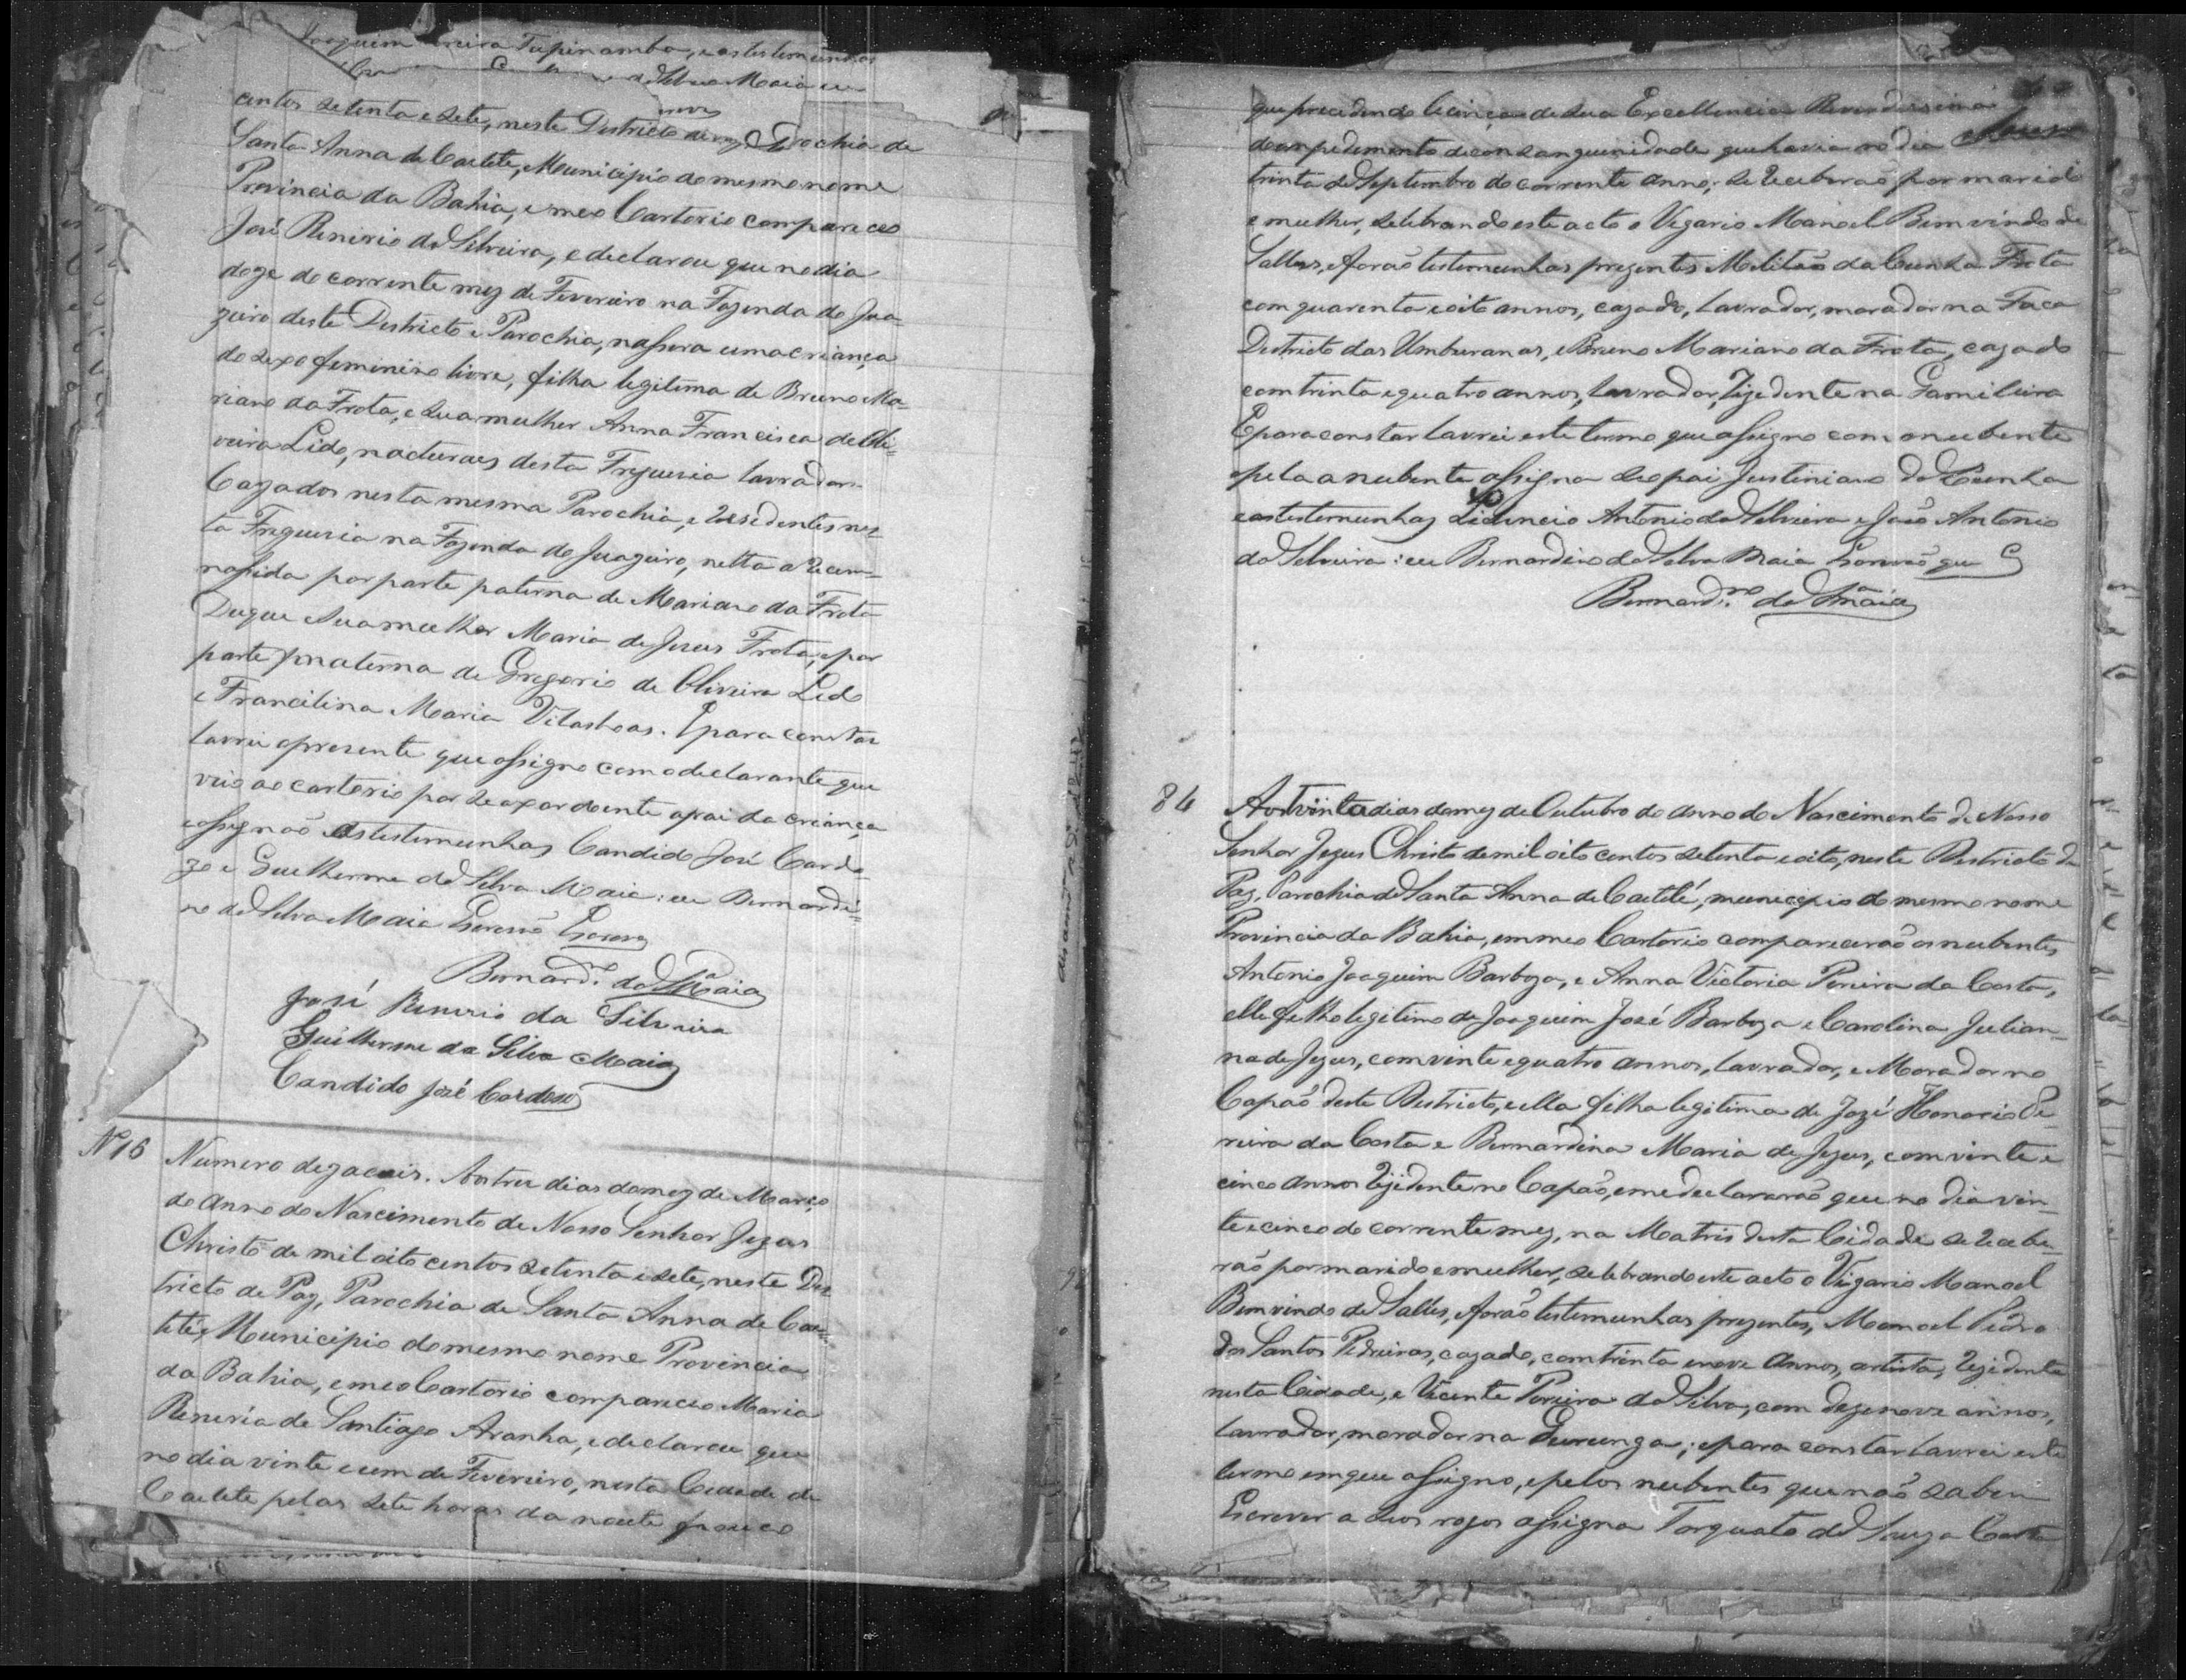 Tupinamba, e as testemunhas
da Silva Maia eu
centos setenta e sete, neste Districto Parochia de
Santa Anna de Caetete, Municipio do mesmo nome
Provincia da Bahia, e meo Cartorio compareceo
José Renirio da Silveira, e declarou que no dia
doze do corrente mez de Fevereiro na Fazenda do Jua-
zeiro deste Districto e Parochia, nassera uma criança
do sexo feminino livre, filha legitima de Bruno Ma-
riano da Frota, e sua mulher Anna Francisca de Oli-
veira Lido, nacturaes desta Freguesia lavradores
Cazados nesta mesma Parochia, e residentes nes-
ta Freguesia na Fazenda do Juazeiro, netta a recem-
nassida por parte paterna de Mariano da Frota
Duque e sua mulher Maria de Jesus Frota, e por
parte materna de Gregorio de Oliveira Ledo
e Francilina Maria Vilasboas. E para constar
lavrei o presente que assigno com o declarante que
veio ao cartorio por se axar doente o pai da criança
e assignaõ as testemunhas Candido José Cardo-
zo e Guilherme da Silva Maia: eu Bernardi-
no da Silva Maia Escrivaõ Escrevy
Bernard.º da S.ª Maia
José Renerio da Silveira
Guilherme da Silva Maia
Candido José Cardoso
Nº 16 Numero dezaceis. Aos tres dias do mez de Março
do anno do Nascimento de Nosso Senhor Jezus
Christo de mil oito centos setenta e sete, neste Dis-
tricto de Paz, Parochia de Santa Anna de Cae-
teté, Municipio do mesmo nome Provincia
da Bahia, e meo Cartorio compareceo Maria
Reneria de Santiago Aranha, e declarou que
no dia vinte e um de Fevereiro, nesta Cidade de
Caetete pelas sete horas da noute
que precedendo licença de Sua Excellencia Reverendissima
do impedimento de consanguinidade que havia no dia
trinta de Septembro do corrente anno, se receberaõ por marido
e mulher, selebrando este acto o Vigario Manoel Bemvindo de
Salles, e foraõ testemunhas prezentes Melitaõ da Cunha Frota
com quarenta e oito annos, cazado, lavrador, morador na Faca
Districto das Umburanas, e Bruno Mariano da Frota, cazado
com trinta e quatro annos, lavrador, rezidente na Gameleira
E para constar lavrei este termo que assigno com o nubente
e pela a nubente assigna seo pai Justiniano da Cunha
e as testemunhas Antonio da Silveira e João Antonio
da Silveira: eu Bernardino da Silva Maia Escrivaõ que
Bernard.no da S.ª Maia
84 Aos trinta dias do mez de Outubro do anno do Nascimento de Nosso
Senhor Jezus Christo de mil oito centos setenta e oito, neste Districto de
Paz, Parochia de Santa Anna de Caetité, municipio do mesmo nome
Provincia da Bahia, em meo Cartorio compareceraõ os nubentes
Antonio Joaquim Barboza, e Anna Victoria Pereira da Costa,
elle filho legitimo de Joaquim José Barboza e Carolina Julian-
na de Jezus, com vinte e quatro annos, lavrador, e Morador no
Capaõ deste Districto, e ella filha legitima de Jozé Honorio Pe-
reira da Costa e Bernardina Maria de Jezus, com vinte e
cinco annos rezidente no Capaõ, e me declararaõ que no dia vin-
te e cinco do corrente mez, na Matris desta Cidade se recebe-
raõ por marido e mulher, selebrando este acto o Vigario Manoel
Bemvindo de Salles, e foraõ testemunhas prezentes, Manoel Pedro
dos Santos Pedreiras, cazado, com trinta e nove annos, artista, rezidente
nesta Cidade, e Vicente Pereira da Silva, com dezenove annos,
lavrador, morador na ; e para constar lavrei este
termo em que assigno, e pelos nubentes que naõ sabem
Escrever a seos rogos assigna Torquato de Souza Costa